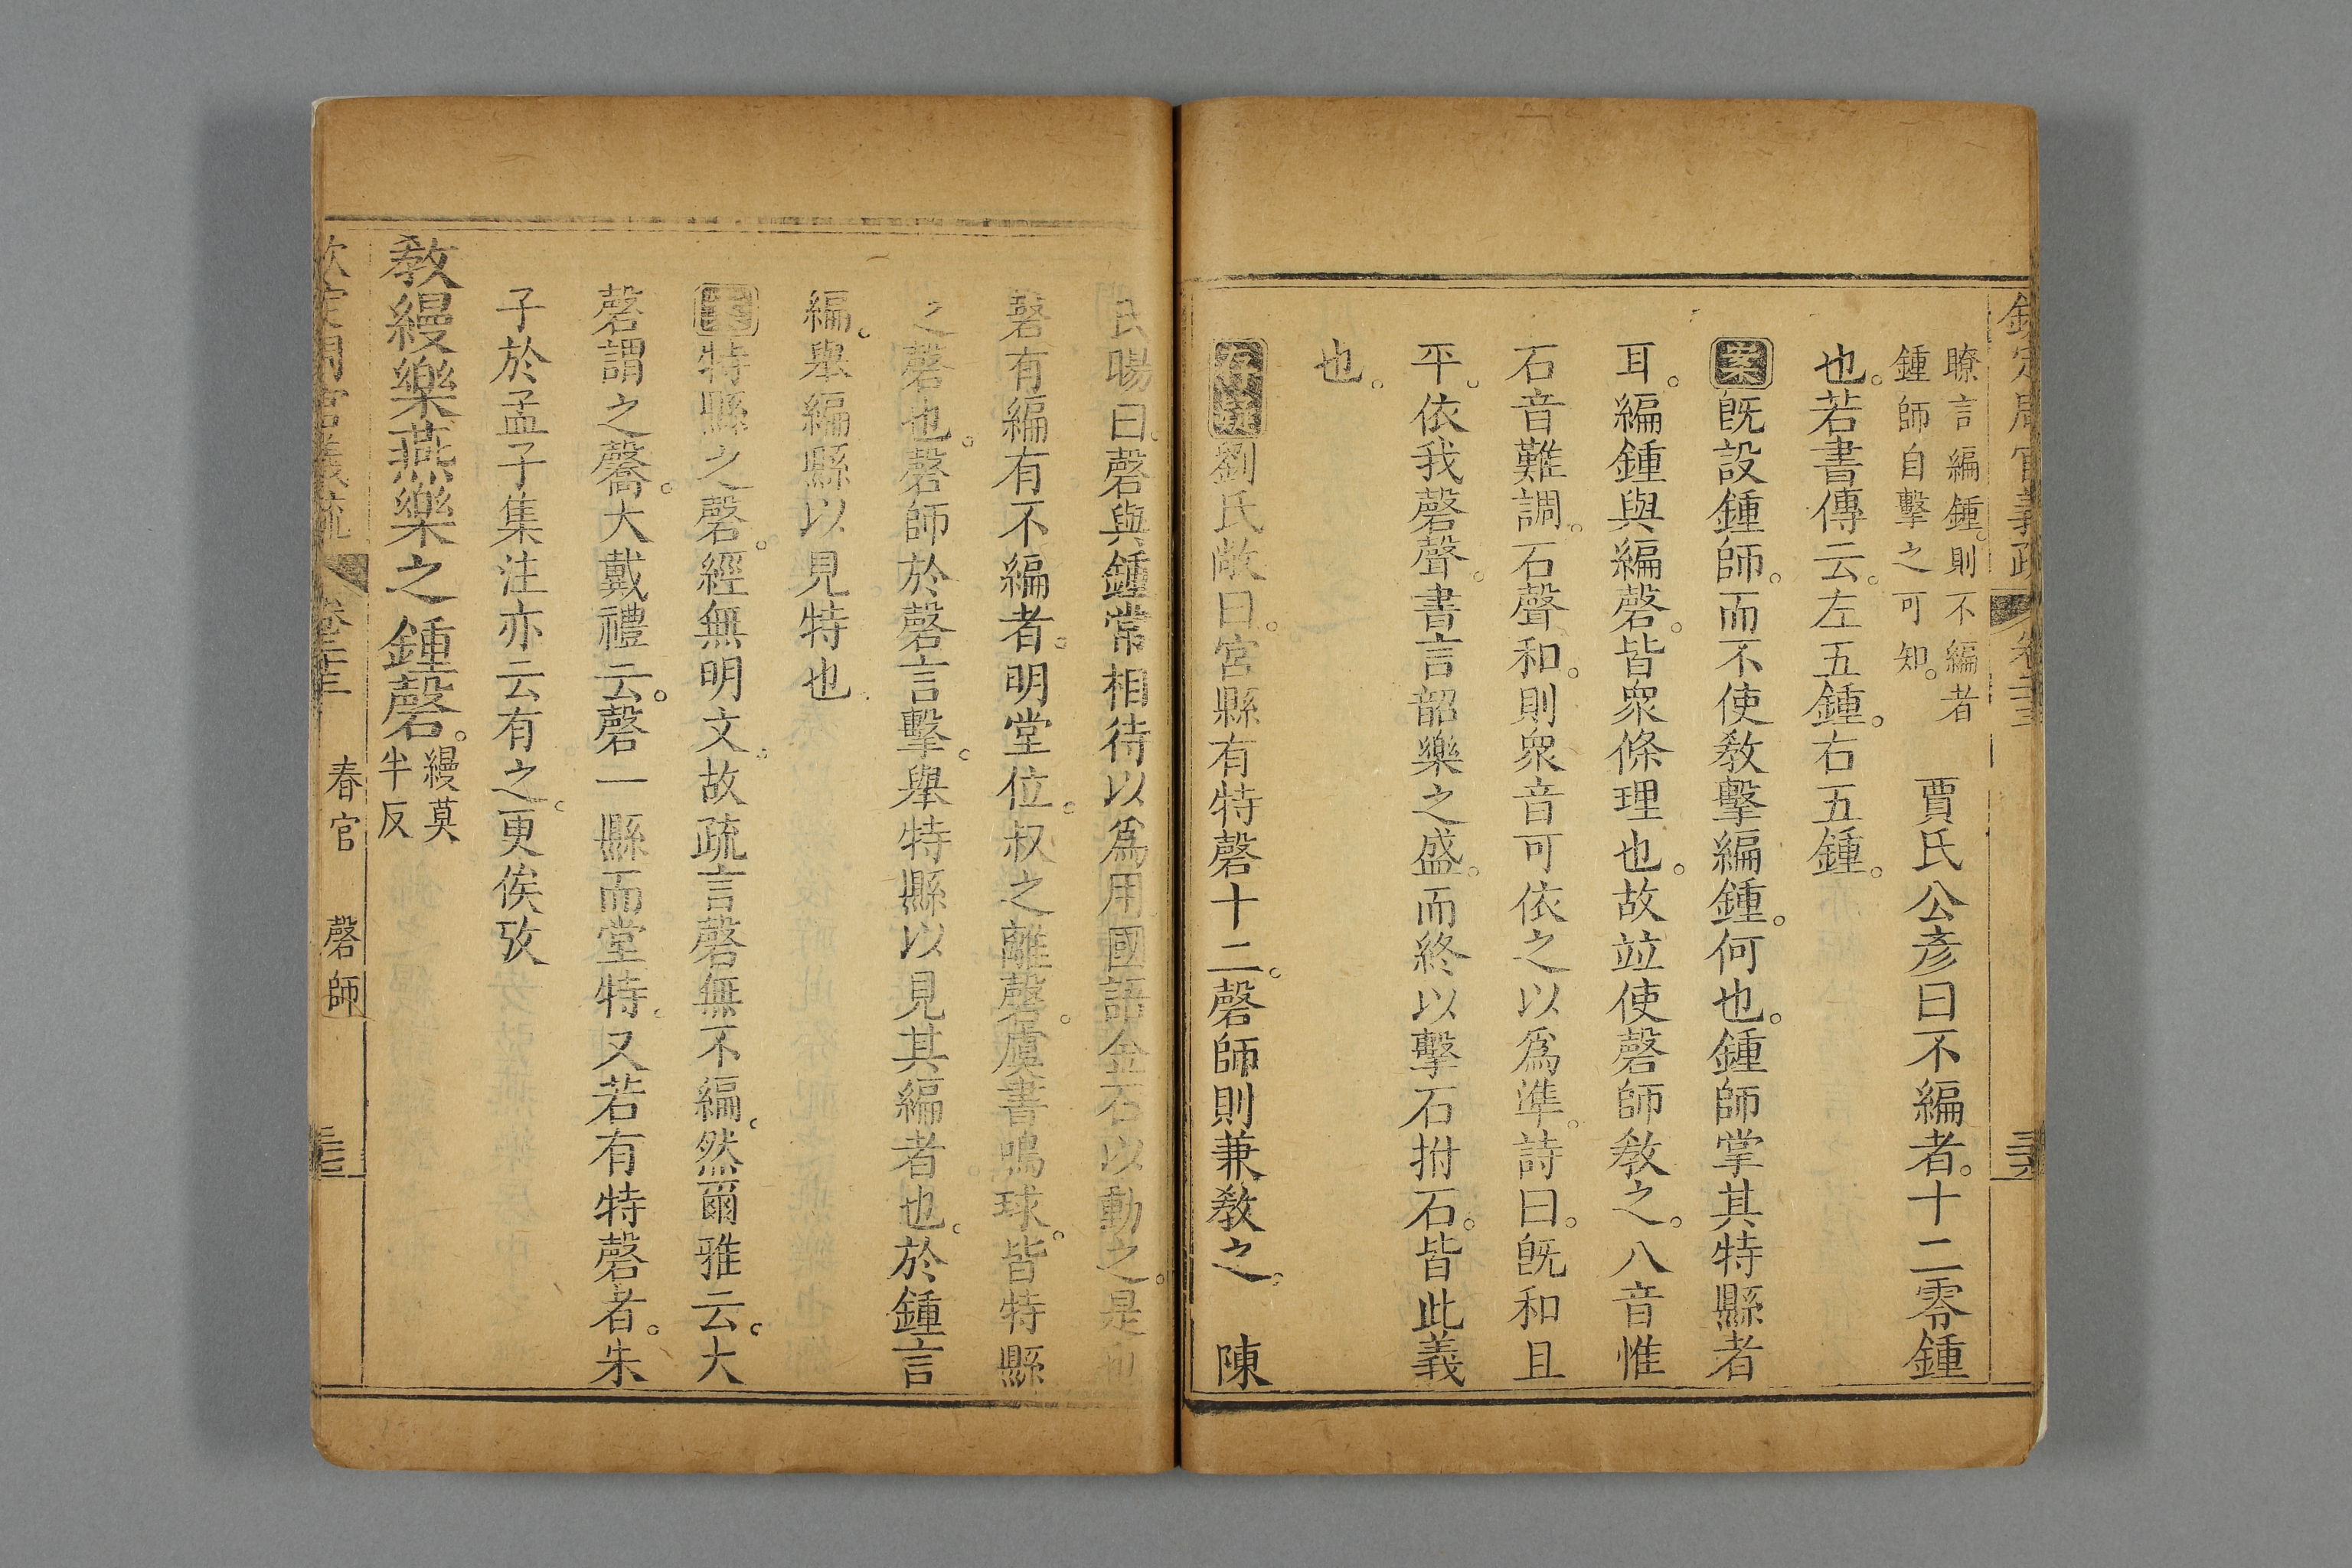 欽定周官義疏 卷二十三
瞭言編鍾則不編者
鍾師自擊之可知 賈氏公彥曰不編者十二零鍾
也若書傳云左五鍾右五鍾
案旣設鍾師而不使敎擊編鍾何也鍾師掌其特縣者
耳編鍾與編磬皆衆條理也故竝使磬師敎之八音惟
石音難調石聲和則衆音可依之以爲準詩曰旣和且
平依我磬聲書言韶樂之盛而終以擊石拊石皆此義
也
存疑劉氏敞曰宮縣有特磬十二磬師則兼敎之 陳
氏暘曰磬與鍾常相待以爲用國語金石以動之是
磬有編有不編者明堂位叔之離磬虞書鳴球皆特縣
之磬也磬師於磬言擊舉特縣以見其編者也於鍾言
編舉編縣以見特也
案特縣之磬經無明文故疏言磬無不編然爾雅云大
磬謂之毊大戴禮云磬一縣而堂特又若有特磬者朱
子於孟子集注亦云有之更俟攷
敎縵樂燕樂之鍾磬 縵莫
半反
欽定周官義疏 卷二十三 春官 磬師